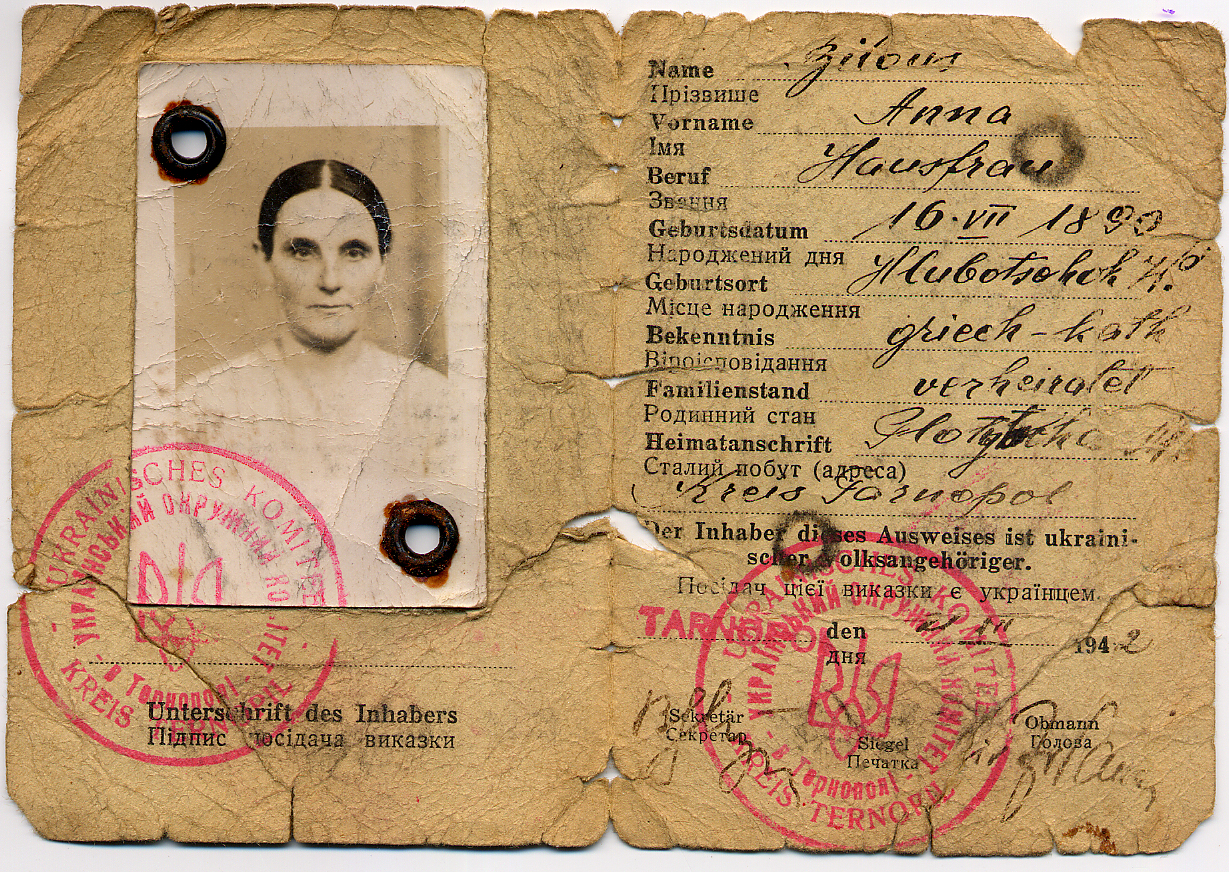 UKRAINISCHES KOMITEE
УКРАЇНСЬКИЙ ОКРУЖНИЙ КОМІТЕТ
- в Тернополі -
KREIS
Unterschrift des Inhabers
Підпис посідача виказки
Name
Прізвише
Vorname Anna
Імя
Beruf Hausfrau
Звання
Geburtsdatum 16·VII 1899
Народжений дня
Geburtsort Hlubotschok
Місце народження
Bekenntnis griech-kath
Віроісповідання
Familienstand verheiratet
Родинний стан
Heimatanschrift
Сталий побут (адреса)
Kreis Tarnopol
Der Inhaber dieses Ausweises ist ukraini-
scher Volksangehöriger.
Посідач цієї виказки є українцем.
TARNOPOL den 1942
дня
Sekretär
Секретар
Siegel
Печатка
Obmann
Голова
UKRAINISCHES KOMITEE
УКРАЇНСЬКИЙ ОКРУЖНИЙ КОМІТЕТ
- в Тернополі -
KREIS TERNOPIL